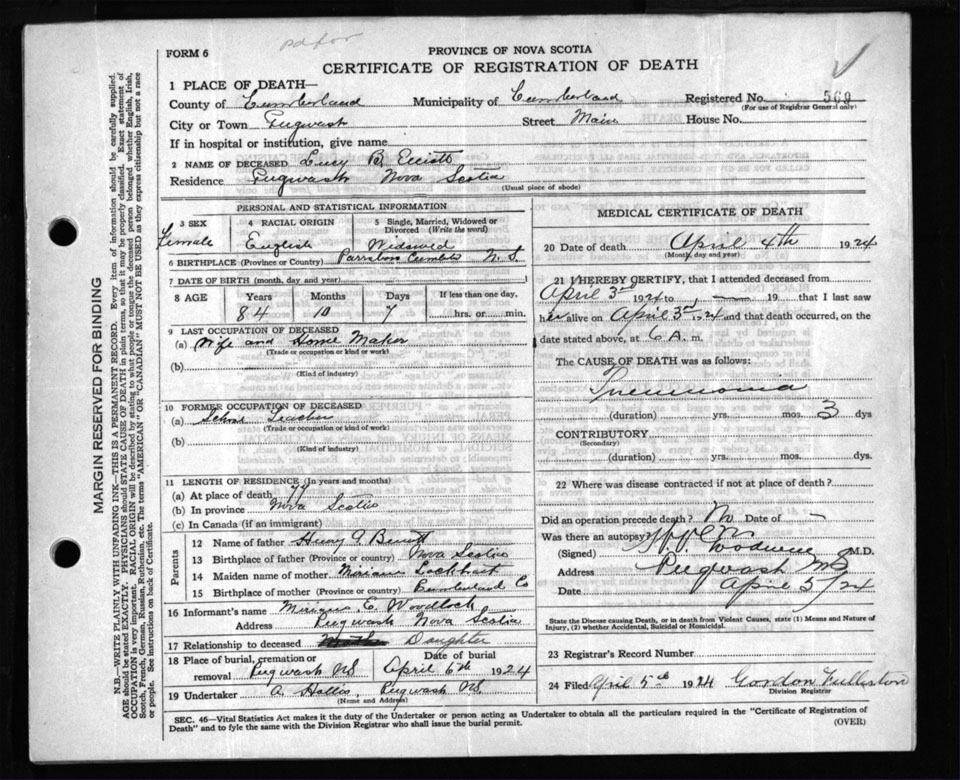 FORM 6
PROVINCE OF NOVA SCOTIA
CERTIFICATE OF REGISTRATION OF DEATH
1 PLACE OF DEATH—
County of Cumberland Municipality of Cumberland Registered No. 569
(For use of Registrar General only)
City or Town Pugwash Street Main House No.
If in hospital or institution, give name
2 NAME OF DECEASED Lucy B.
Residence Pugwash Nova Scotia
(Usual place of abode)
PERSONAL AND STATISTICAL INFORMATION
3 SEX 4 RACIAL ORIGIN 5 Single, Married, Widowed or
Divorced (Write the word)
Female English Widowed
6 BIRTHPLACE (Province or Country) Parrsboro N.S.
7 DATE OF BIRTH (month, day and year)
8 AGE Years Months Days If less than one day,
84 10 7 hrs. or min.
9 LAST OCCUPATION OF DECEASED
(a) Wife and Home Maker
(Trade or occupation or kind or work)
(b)
(Kind of industry)
10 FORMER OCCUPATION OF DECEASED
(a) School Teacher
(Trade or occupation or kind of work)
(b)
(Kind of industry)
11 LENGTH OF RESIDENCE (In years and months)
(a) At place of death
(b) In province Nova Scotia
(c) In Canada (if an immigrant)
Parents
12 Name of father
13 Birthplace of father (Province or country) Nova Scotia
14 Maiden name of mother Miriam Lockhart
15 Birthplace of mother (Province or country) Co
16 Informant's name C. Woodlock
Address Pugwash Nova Scotia
17 Relationship to deceased Daughter
18 Place of burial, cremation or Date of burial
removal Pugwash NS April 6th 1924
19 Undertaker A. Hollis, Pugwash NS.
(Name and Address)
MEDICAL CERTIFICATE OF DEATH
20 Date of death April 4th 1924
(Month, day and year)
21 I HEREBY CERTIFY, that I attended deceased from
April 3rd 1924 to 19 that I last saw
her alive on April 3rd, 24 and that death occurred, on
date stated above, at 6 A. m.
The CAUSE OF DEATH was as follows:
Pneumonia
(duration) yrs. mos. 3 dys
CONTRIBUTORY
(Secondary)
(duration) yrs. mos. dys.
22 Where was disease contracted if not at place of death?
Did an operation precede death? No Date of —
Was there an autopsy?
(Signed) M.D.
Address Pugwash NS
Date April 5/24
State the Disease causing Death, or in death from Violent Causes, state (1) Means and Nature of
Injury, (2) whether Accidental, Suicidal or Homicidal.
23 Registrar's Record Number
24 Filed April 5th 1924 Gordon
Division Registrar
SEC. 46—Vital Statistics Act makes it the duty of the Undertaker or person acting as Undertaker to obtain all the particulars required in the "Certificate of Registration of
Death" and to fyle the same with the Division Registrar who shall issue the burial permit.
(OVER)
MARGIN RESERVED FOR BINDING
N.B.—WRITE PLAINLY WITH UNFADING INK—THIS IS A PERMANENT RECORD. Every item of information should be carefully supplied.
AGE should be stated EXACTLY. PHYSICIANS should STATE CAUSE OF DEATH in plain terms, so that it may be properly classified. Exact statement of
OCCUPATION is very important. RACIAL ORIGIN will be described by stating to what people or tongue the deceased person belonged whether English, Irish,
Scotch, French, German, Russian, Ruthenian, etc. The terms "AMERICAN" OR "CANADIAN" MUST NOT BE USED as they express citizenship but not a race
or people. See instructions on back of Certificate.